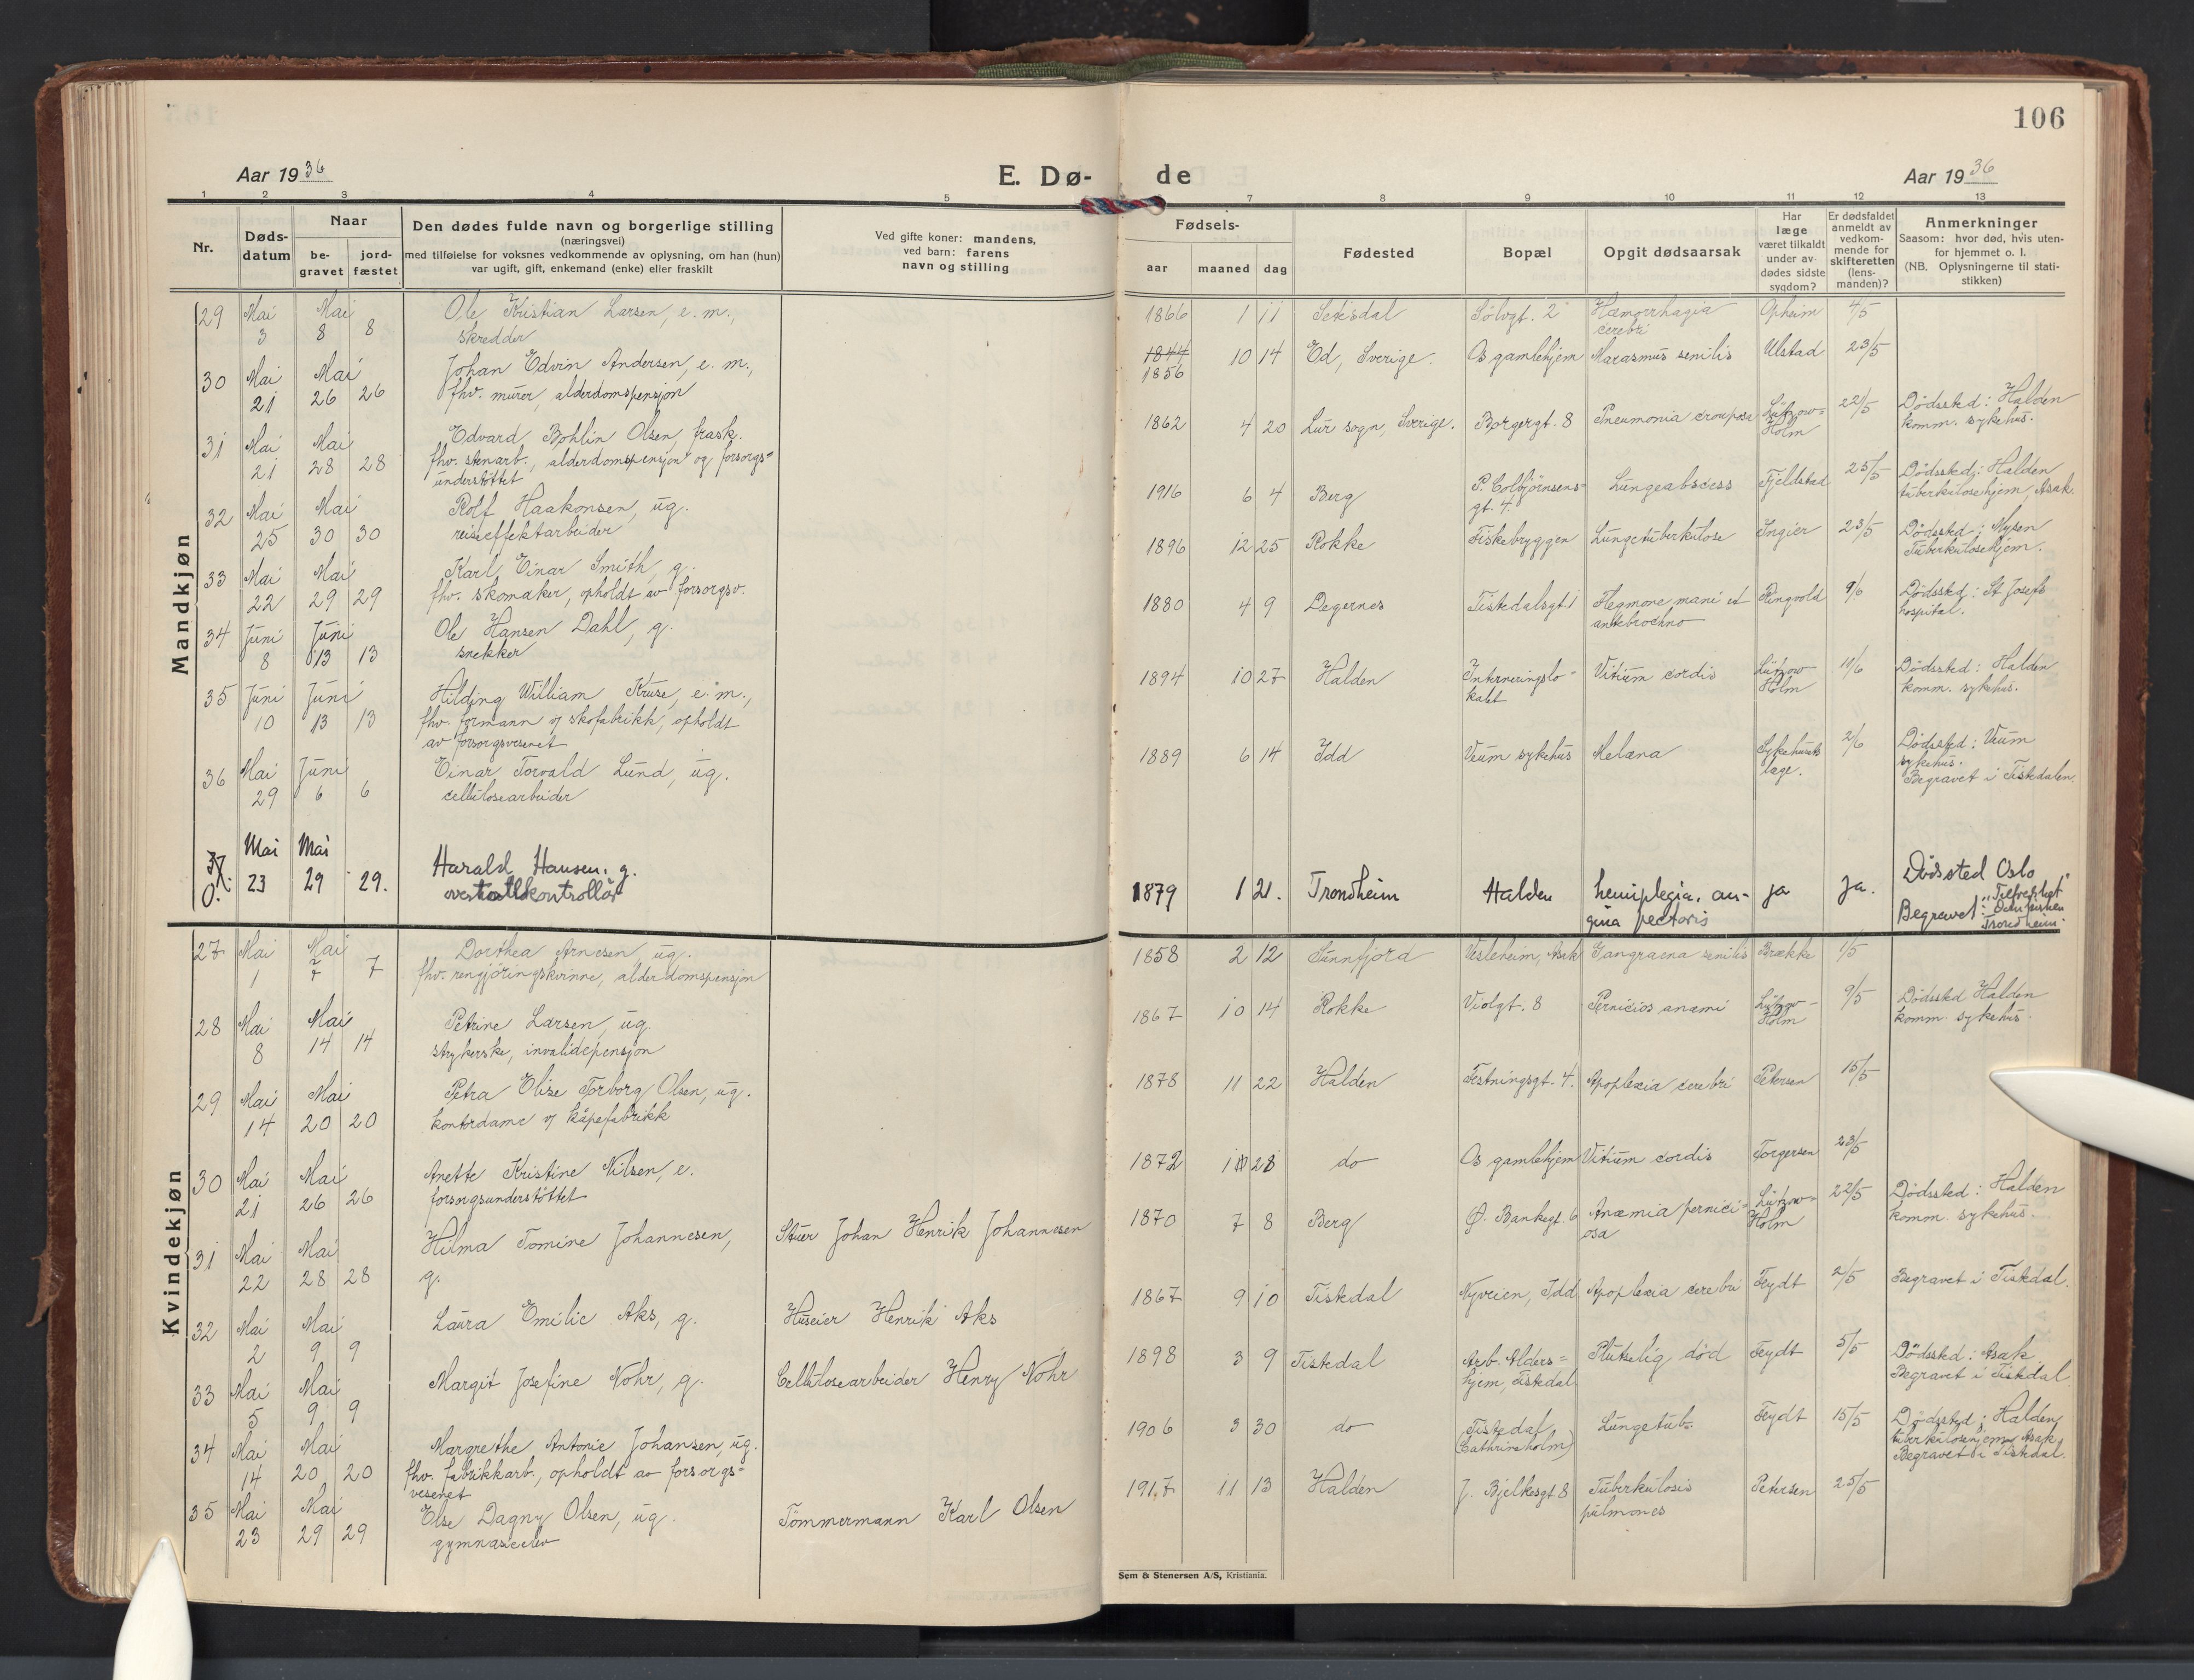 106
Aar 1936
E. Dø-
de
Aar 1936
1 2 3 4 5 7 8 9 10 11 12 13
Nr.
Døds-
datum
Naar
be-
gravet
jord-
fæstet
Den dødes fulde navn og borgerlige stilling
(næringsvei)
med tilføielse for voksnes vedkommende av oplysning, om han (hun)
var ugift, gift, enkemand (enke) eller fraskilt
Ved gifte koner: mandens,
ved barn: farens
navn og stilling
Fødsels-
aar maaned dag
Fødested
Bopæl
Opgit dødsaarsak
Har
læge
været tilkaldt
under av-
dødes sidste
sygdom?
Er dødsfaldet
anmeldt av
vedkom-
mende for
skifteretten
(lens-
manden)?
Anmerkninger
Saasom: hvor død, hvis uten-
for hjemmet o. l.
(NB. Oplysningerne til stati-
stikken)
Mandkjøn
29 Mai Mai Ole Kristian Larsen, e. m., 1866 1 11 Setesdal Sölvgt. 2 Hæmorrhagia Opheim 4/5
3 8 8 skredder cerebri
30 Mai Mai Johan Edvin Andersen, e. m., 1844 10 14 Ed, Sverige. Os gamlehjem Marasmus senilis Ulstad 23/5
21 26 26 fhv. murer, alderdomspensjon 1856
31 Mai Mai Edvard Bohlin Olsen, frask. 1862 4 20 Lur sogn, Sverige. Borgergt. 8 Pneumonia crouposa Lützow- 22/5 Dödssted: Halden
21 28 28 fhv. stenarb., alderdomspensjon og forsorgs- Holm komm. sykehus.
understöttet
32 Mai Mai Rolf Haakonsen, ug. 1916 6 4 Berg P. Colbjörnsens- Lungeabscess Fjeldstad 25/5 Dödssted: Halden
25 30 30 reiseeffektarbeider gt. 4. tuberkulosehjem, Asak.
33 Mai Mai Karl Einar Smith, g. 1896 12 25 Rokke Fiskebryggen Lungetuberkulose Ingier 23/5 Dödssted: Mysen
22 29 29 fhv. skomaker, opholdt av forsorgsv. Tuberkulosehjem.
34 Juni Juni Ole Hansen Dahl, g. 1880 4 9 Degernes Tistedalsgt. 1 Flegmone mani et Ringvold 9/6 Dödssted: St. Josefs
8 13 13 snekker antebrochno hospital.
35 Juni Juni Hilding William Kruse, e. m., 1894 10 27 Halden Interneringslo- Vitium cordis Lützow- 10/6 Dödssted: Halden
10 13 13 fhv. formann v/ skofabrikk, opholdt kalet Holm komm. sykehus.
av forsorgsvesenet
36 Mai Juni Einar Torvald Lund, ug. 1889 6 14 Idd Veum sykehus Melæna Sykehusets 2/6 Dödssted: Veum
29 6 6 cellulosearbeider læge. sykehus.
Begravet i Tistedalen.
37. Mai Mai Harald Hansen. g. 1879 1 21. Trondheim Halden hemiplegia, an- ja ja. Dödssted Oslo
O. 23 29 29. overtollkontrollör gina pectoris Begravet: "Tilfredshet"
Trondheim.
Kvindekjøn
27 Mai Mai Dorthea Arnesen, ug. 1858 2 12 Sunnfjord Vesleheim, Asak Gangraena senilis Brække 1/5
1 7 7 fhv. rengjöringskvinne, alderdomspensjon
28 Mai Mai Petrine Larsen, ug. 1867 10 14 Rokke Violgt. 8 Perniciös anæmi Lützow- 9/5 Dödssted Halden
8 14 14 strykerske, invalidepensjon Holm komm. sykehus.
29 Mai Mai Petra Elise Torborg Olsen, ug. 1878 11 22 Halden Festningsgt. 4. Apoplexia cerebri Petersen 15/5
14 20 20 kontordame v/ kåpefabrikk
30 Mai Mai Anette Kristine Nilsen, e. 1872 28 do Os gamlehjem Vitium cordis Torgersen 23/5
21 26 26 forsorgsunderstöttet
31 Mai Mai Hilma Tomine Johannesen, Stuer Johan Henrik Johannesen 1870 7 8 Berg Ø. Bankegt. 6 Anæmia pernici- Lützow- 22/5 Dödssted: Halden
22 28 28 g. osa Holm komm. sykehus.
32 Mai Mai Laura Emilie Aks, g. Huseier Henrik Aks 1867 9 10 Tistedal Nyveien, Idd Apoplexia cerebri Feydt 2/5 Begravet i Tistedal.
2 9 9
33 Mai Mai Margit Josefine Nohr, g. Cellulosearbeider Henry Nohr 1898 3 9 Tistedal Arb. Alders- Plutselig död Feydt 5/5 Dödssted: Asak
5 9 9 hjem, Tistedal Begravet i Tistedal
34 Mai Mai Margrethe Antonie Johansen, ug. 1906 3 30 do Tistedal Lungetub. Feydt 15/5 Dödssted: Halden
14 20 20 fhv. fabrikkarb., opholdt av forsorgs- (Cathrineholm) tuberkulosehjem, Asak
vesenet Begravet i Tistedal.
35 Mai Mai Else Dagny Olsen, ug. Tömmermann Karl Olsen 1917 11 13 Halden J. Bjelkesgt 8 Tuberkulosis Petersen 25/5
23 29 29 gymnasieelev pulmones
Sem & Stenersen A/S, Kristiania.